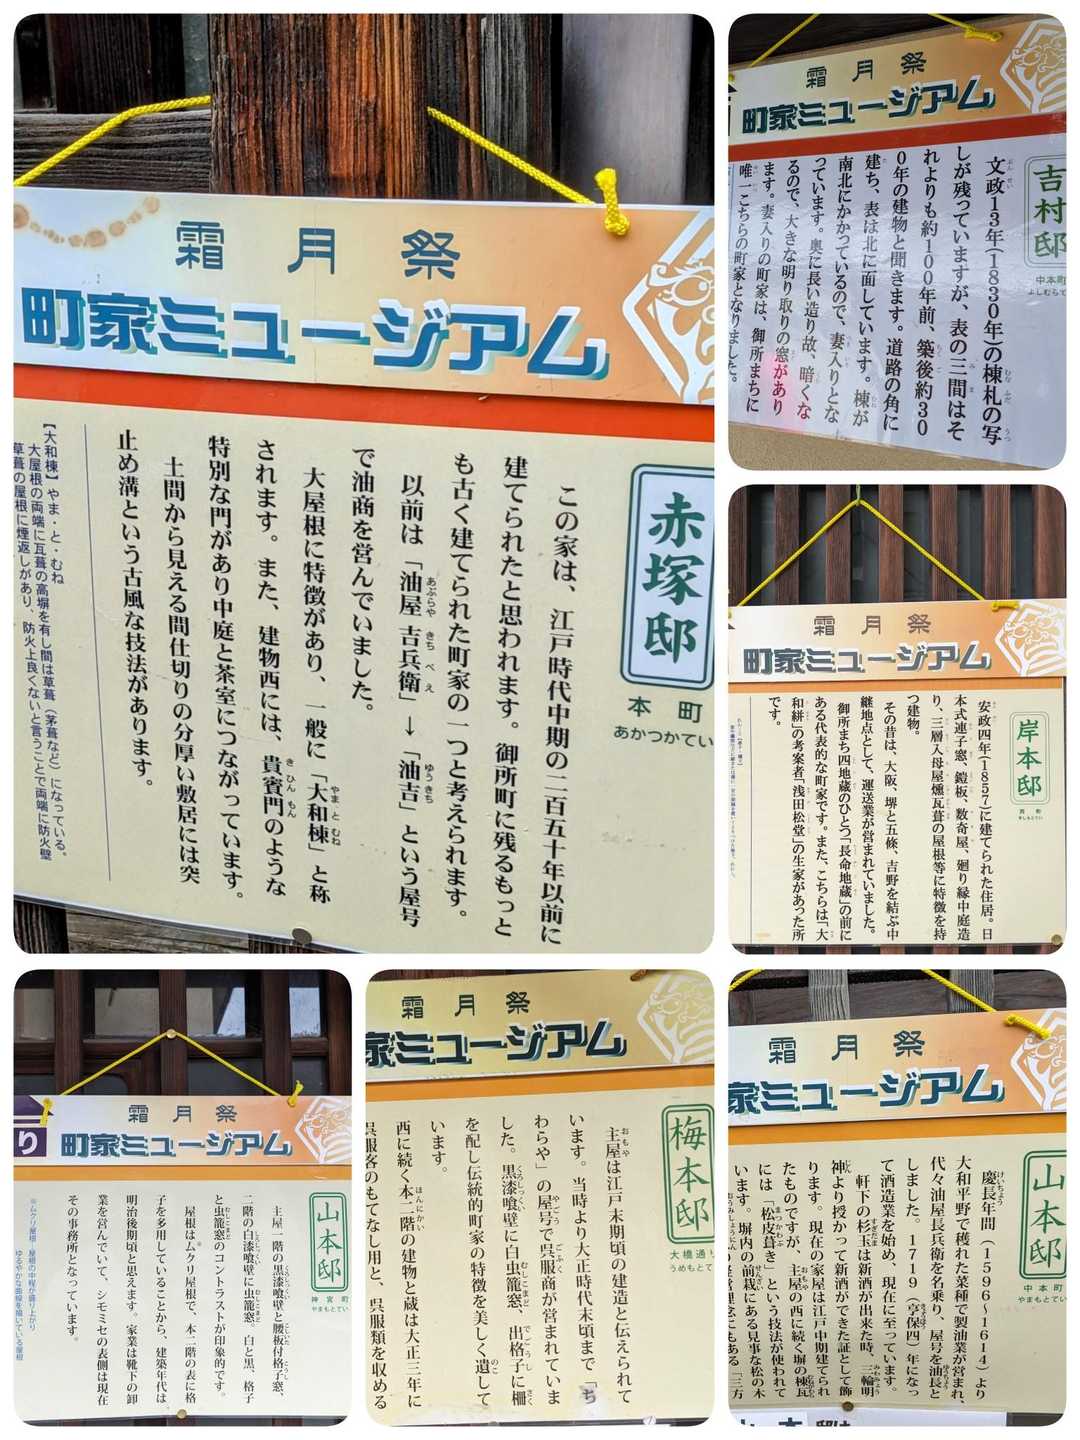 霜月祭
町家ミュージアム
赤塚邸
本町
あかつかてい
この家は、江戸時代中期の二百五十年以前に
建てられたと思われます。御所町に残るもっと
も古く建てられた町家の一つと考えられます。
以前は「油屋 吉兵衛」→「油吉」という屋号
で油商を営んでいました。
大屋根に特徴があり、一般に「大和棟」と称
されます。また、建物西には、貴賓門のような
特別な門があり中庭と茶室につながっています。
土間から見える間仕切りの分厚い敷居には突
止め溝という古風な技法があります。
【大和棟】やま・と・むね
大屋根の両端に瓦葺の高塀を有し間は草葺(茅葺など)になっている。
草葺の屋根に煙返しがあり、防火上良くないと言うことで両端に防火壁
霜月祭
町家ミュージアム
吉村邸
中本町
よしむらて
文政13年(1830年)の棟札の写
しが残っていますが、表の三間はそ
れよりも約100年前、築後約30
0年の建物と聞きます。道路の角に
建ち、表は北に面しています。棟が
南北にかかっているので、妻入りとな
っています。奥に長い造り故、暗くな
るので、大きな明り取りの窓があり
ます。妻入りの町家は、御所まちに
唯一こちらの町家となりました。
霜月祭
町家ミュージアム
岸本邸
西町
きしもとてい
安政四年(1857)に建てられた住居。日
本式連子窓、鎧板、数奇屋、廻り縁中庭造
り、三層入母屋燻瓦葺の屋根等に特徴を持
つ建物。
その昔は、大阪、堺と五條、吉野を結ぶ中
継地点として、運送業が営まれていました。
御所まち四地蔵のひとつ「長命地蔵」の前に
ある代表的な町家です。また、こちらは「大
和絣」の考案者「浅田松堂」の生家があった所
です。
り
霜月祭
町家ミュージアム
山本邸
神宮町
やまもとてい
主屋一階の黒漆喰壁と腰板付格子窓、
二階の白漆喰壁に虫籠窓。白と黒、格子
と虫籠窓のコントラストが印象的です。
屋根はムクリ屋根で、本二階の表に格
子を多用していることから、建築年代は
明治後期頃と思えます。家業は靴下の卸
業を営んでいて、シモミセの表側は現在
その事務所となっています。
※ムクリ屋根…屋根の中程が盛り上がり
ゆるやかな曲線を描いている屋根
霜月祭
家ミュージアム
梅本邸
大橋通り
うめもとて
主屋は江戸末期頃の建造と伝えられて
います。当時より大正時代末頃まで「ち
わらや」の屋号で呉服商が営まれていま
した。黒漆喰壁に白虫籠窓、出格子に柵
を配し伝統的町家の特徴を美しく遺して
います。
西に続く本二階の建物と蔵は大正三年に
呉服客のもてなし用と、呉服類を収める
霜月祭
家ミュージアム
山本邸
中本町
やまもとてい
慶長年間(1596~1614)より
大和平野で穫れた菜種で製油業が営まれ、
代々油屋長兵衛を名乗り、屋号を油長と
しました。1719(享保四)年になっ
て酒造業を始め、現在に至っています。
軒下の杉玉は新酒が出来た時、三輪明
神より授かって新酒ができた証として飾
ります。現在の家屋は江戸中期建てられ
たものですが、主屋の西に続く塀の棟瓦
には「松皮葺き」という技法が使われて
います。塀内の前栽にある見事な松の木